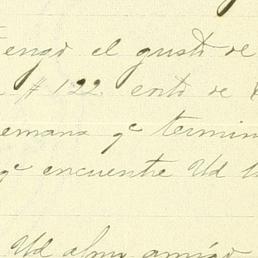 Tengo el gusto de
# 122. exito de
emana qe termin
qe encuentre Ud
Ud almo amigo